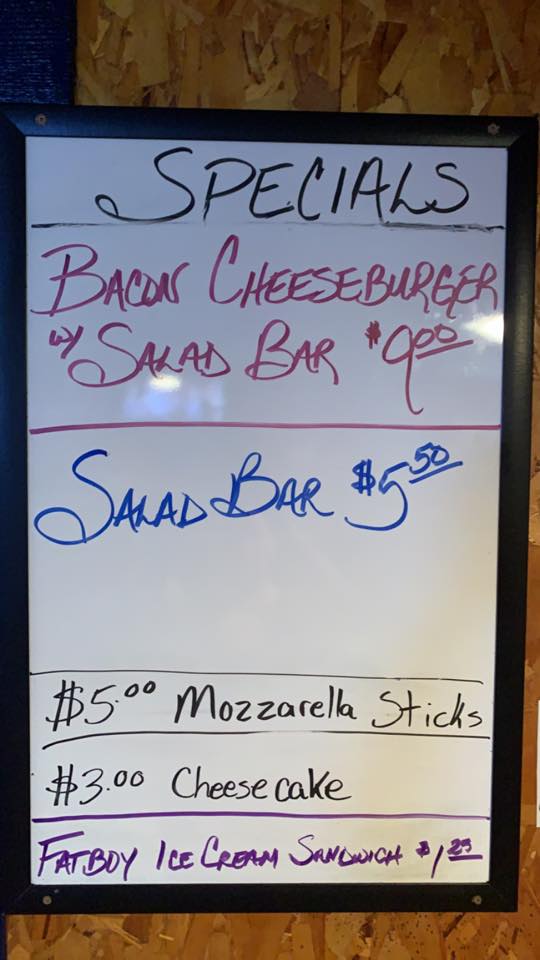 SPECIALS
BACON CHEESEBURGER
w/ SALAD BAR $9.00
SALAD BAR $5.50
$5.00 Mozzarella Sticks
$3.00 Cheesecake
FATBOY ICE CREAM SANDWICH $1.25